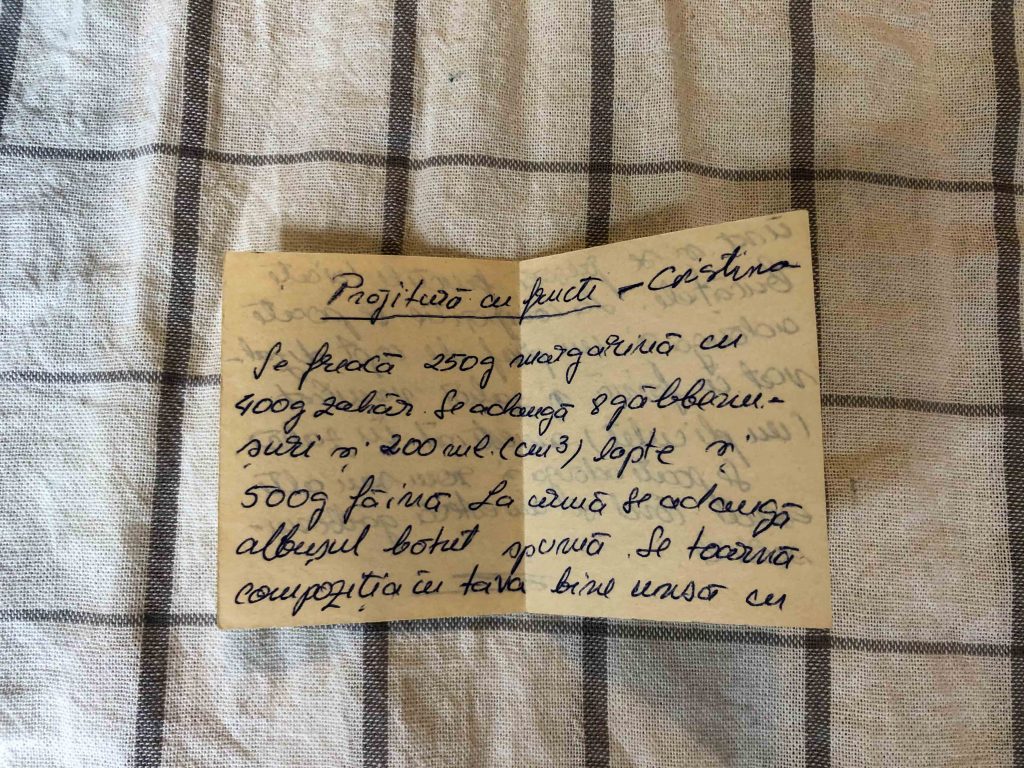 Prăjitură cu fructe - Cristina
Se freacă 250g margarină cu
400g zahăr. Se adaugă 8 gălbenu-
șuri și 200 ml. (cm3) lapte și
500g făină La urmă se adaugă
albușul bătut spumă. Se toarnă
compoziția în tava bine unsă cu